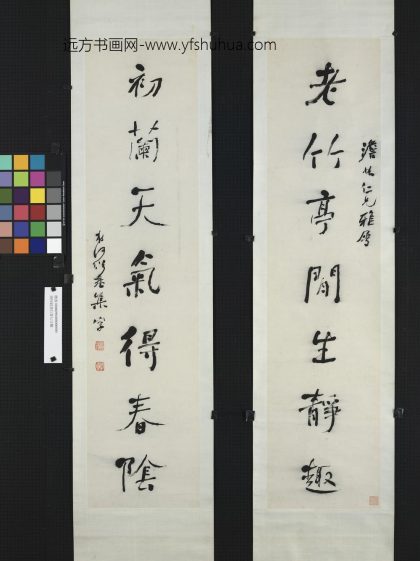 远方书画网-www.yfshuhua.com
老竹亭閒生靜趣
初蘭天氣得春陰
仁兄雅屬
集字